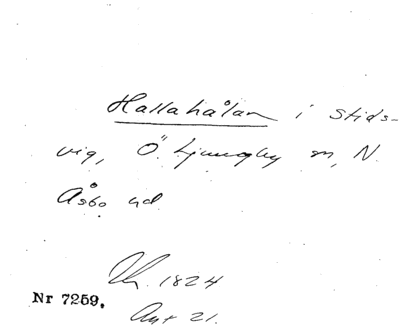 Hallahålan i Stids-
vig, Ö. Ljungby sn, N.
Åsbo hd
1824
Nr 7259. Ant 21.